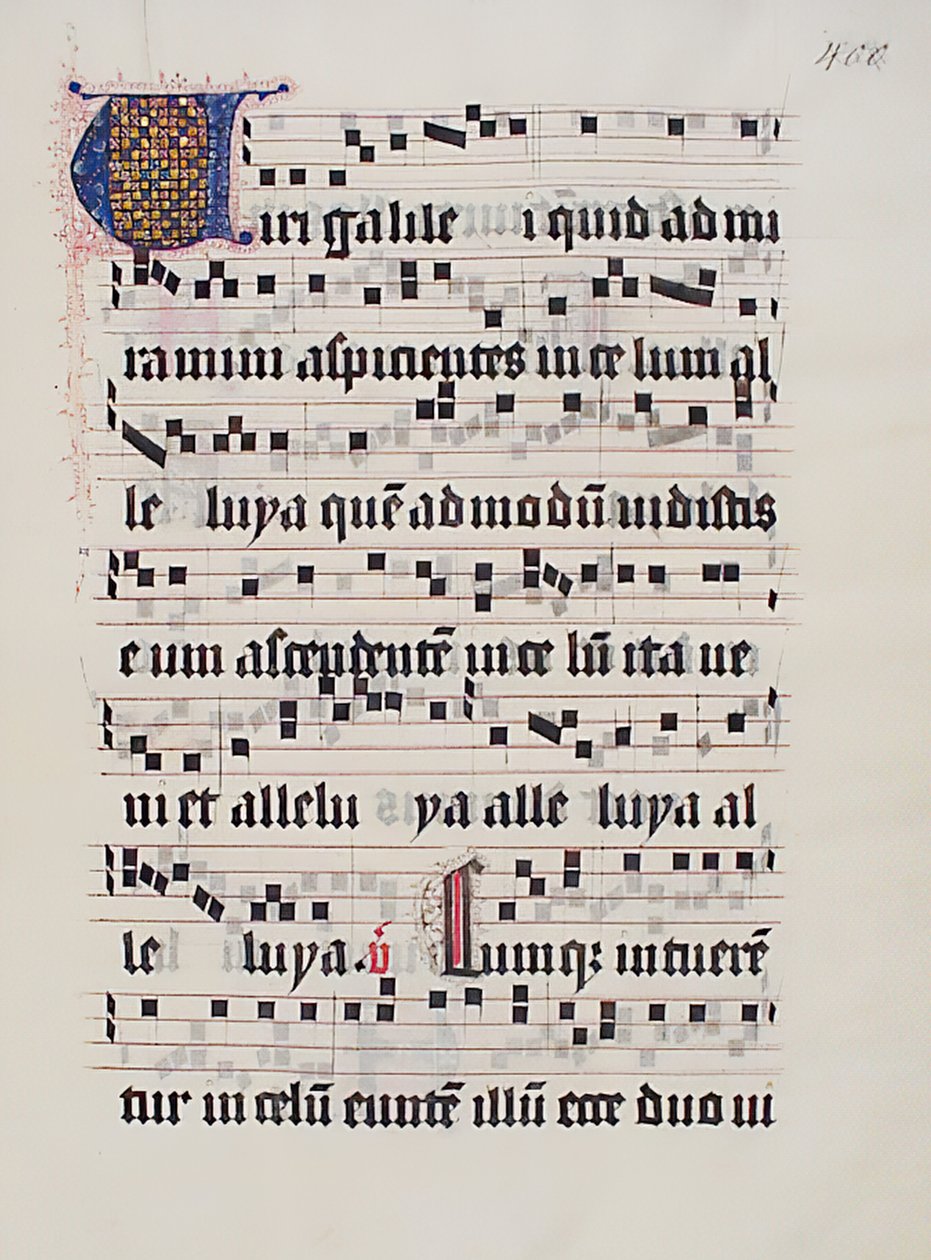 400
Uiri galile i quid ad mi
ramini aspicientes in ce lum al
le luya quē ad modū uidistis
e um ascendentē in ce lū ita ue
ni et allelu ya alle luya al
le luya. v̄ Cumq; intuerē
tur in celū euntē illū ecce duo ui